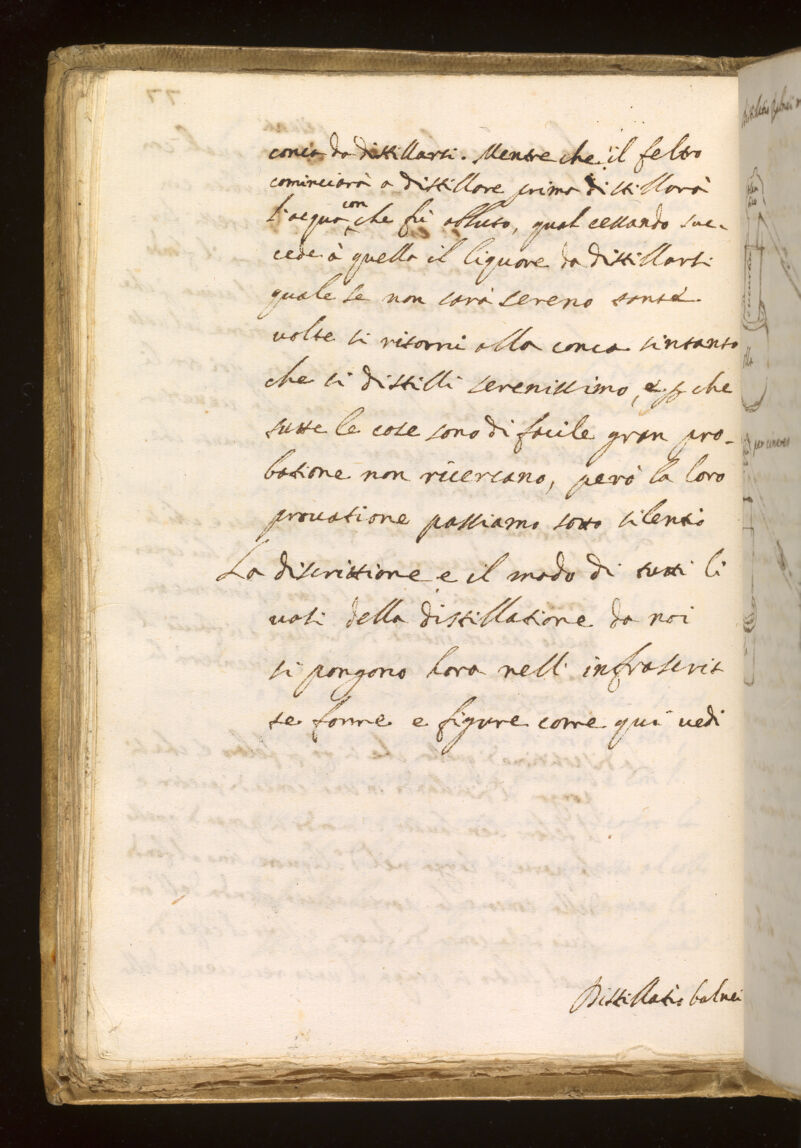 conca da distillarsi. Mentre che il feltro
cominciarà a distillare prima distillarà
l'acqua con che fù abluto, qual cessando suc-
cede à quella il liquore da distillarsi
quale se non sarà sereno tante
volte si ritorni alla conca sintanto
che si distilli serenissimo, e che
tutte le cose sono di facile gran pro-
batione non ricercano, però la loro
provatione passiamo sotto silentio
La discrittione e il modo di tutti li
vasi della distillatione da noi
si pongono hora nell' infrascrit
te forme e figure come qui vedi
Distillatio balnei